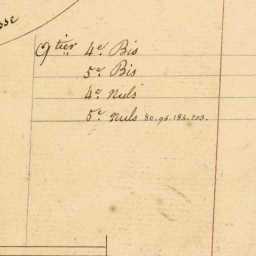 sse
Qtier 4e Bis
5e Bis
4e nuls
5e nuls 80.96.184.203.